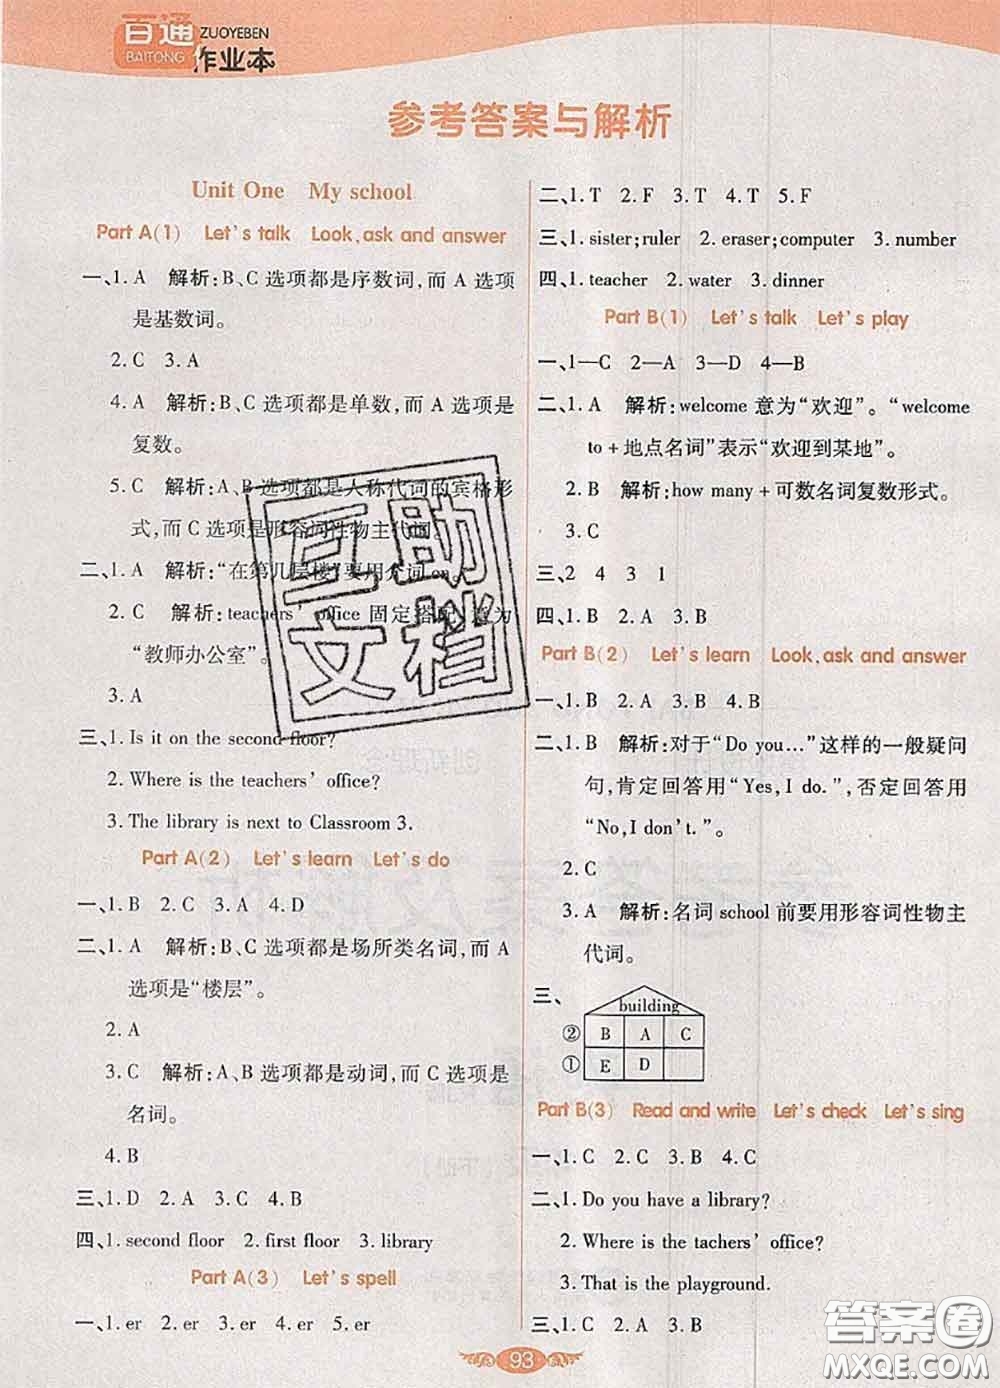 百通
BAITONG
ZUOYEBEN
作业本
参考答案与解析
Unit One My school
Part A(1) Let's talk Look,ask and answer
一、1. A 解析:B、C 选项都是序数词,而 A 选项
是基数词。
2. C 3. A
4. A 解析:B、C 选项都是单数,而 A 选项是
复数。
5. C 解析:A、B 选项都是人称代词的宾格形
式,而 C 选项是形容词性物主代词。
二、1. A 解析:“在第几层楼”要用介词 on。
2. C 解析:teachers' office 固定搭配,意为
“教师办公室”。
3. A
三、1. Is it on the second floor?
2. Where is the teachers' office?
3. The library is next to Classroom 3.
Part A(2) Let's learn Let's do
一、1. B 2. C 3. A 4. D
二、1. A 解析:B、C 选项都是场所类名词,而 A
选项是“楼层”。
2. A
3. C 解析:A、B 选项都是动词,而 C 选项是
名词。
4. B
三、1. D 2. A 3. C 4. B
四、1. second floor 2. first floor 3. library
Part A(3) Let's spell
一、1. er 2. er 3. er 4. er 5. er
二、1. T 2. F 3. T 4. T 5. F
三、1. sister;ruler 2. eraser;computer 3. number
四、1. teacher 2. water 3. dinner
Part B(1) Let's talk Let's play
一、1—C 2—A 3—D 4—B
二、1. A 解析:welcome 意为“欢迎”。“welcome
to +地点名词”表示“欢迎到某地”。
2. B 解析:how many +可数名词复数形式。
3. C
三、2 4 3 1
四、1. B 2. A 3. B
Part B(2) Let's learn Look,ask and answer
一、1. B 2. A 3. B 4. B
二、1. B 解析:对于“Do you…”这样的一般疑问
句,肯定回答用“Yes,I do.”,否定回答用
“No,I don't.”。
2. C
3. A 解析:名词 school 前要用形容词性物主
代词。
三、
building
② B A C
① E D
Part B(3) Read and write Let's check Let's sing
一、1. C 2. C 3. B 4. C
二、1. Do you have a library?
2. Where is the tachers' office?
3. That is the playground.
三、1. C 2. A 3. B
93
互助
文档
答案圈
MXQE.COM